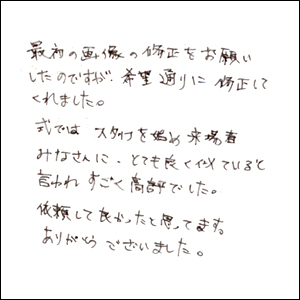 最初の画像の修正をお願い
したのですが、希望通りに修正して
くれました。
式では スタッフを始め 来場者
みなさんに、とても良く似ていると
言われ すごく高評でした。
依頼して良かったと思ってます。
ありがとうございました。